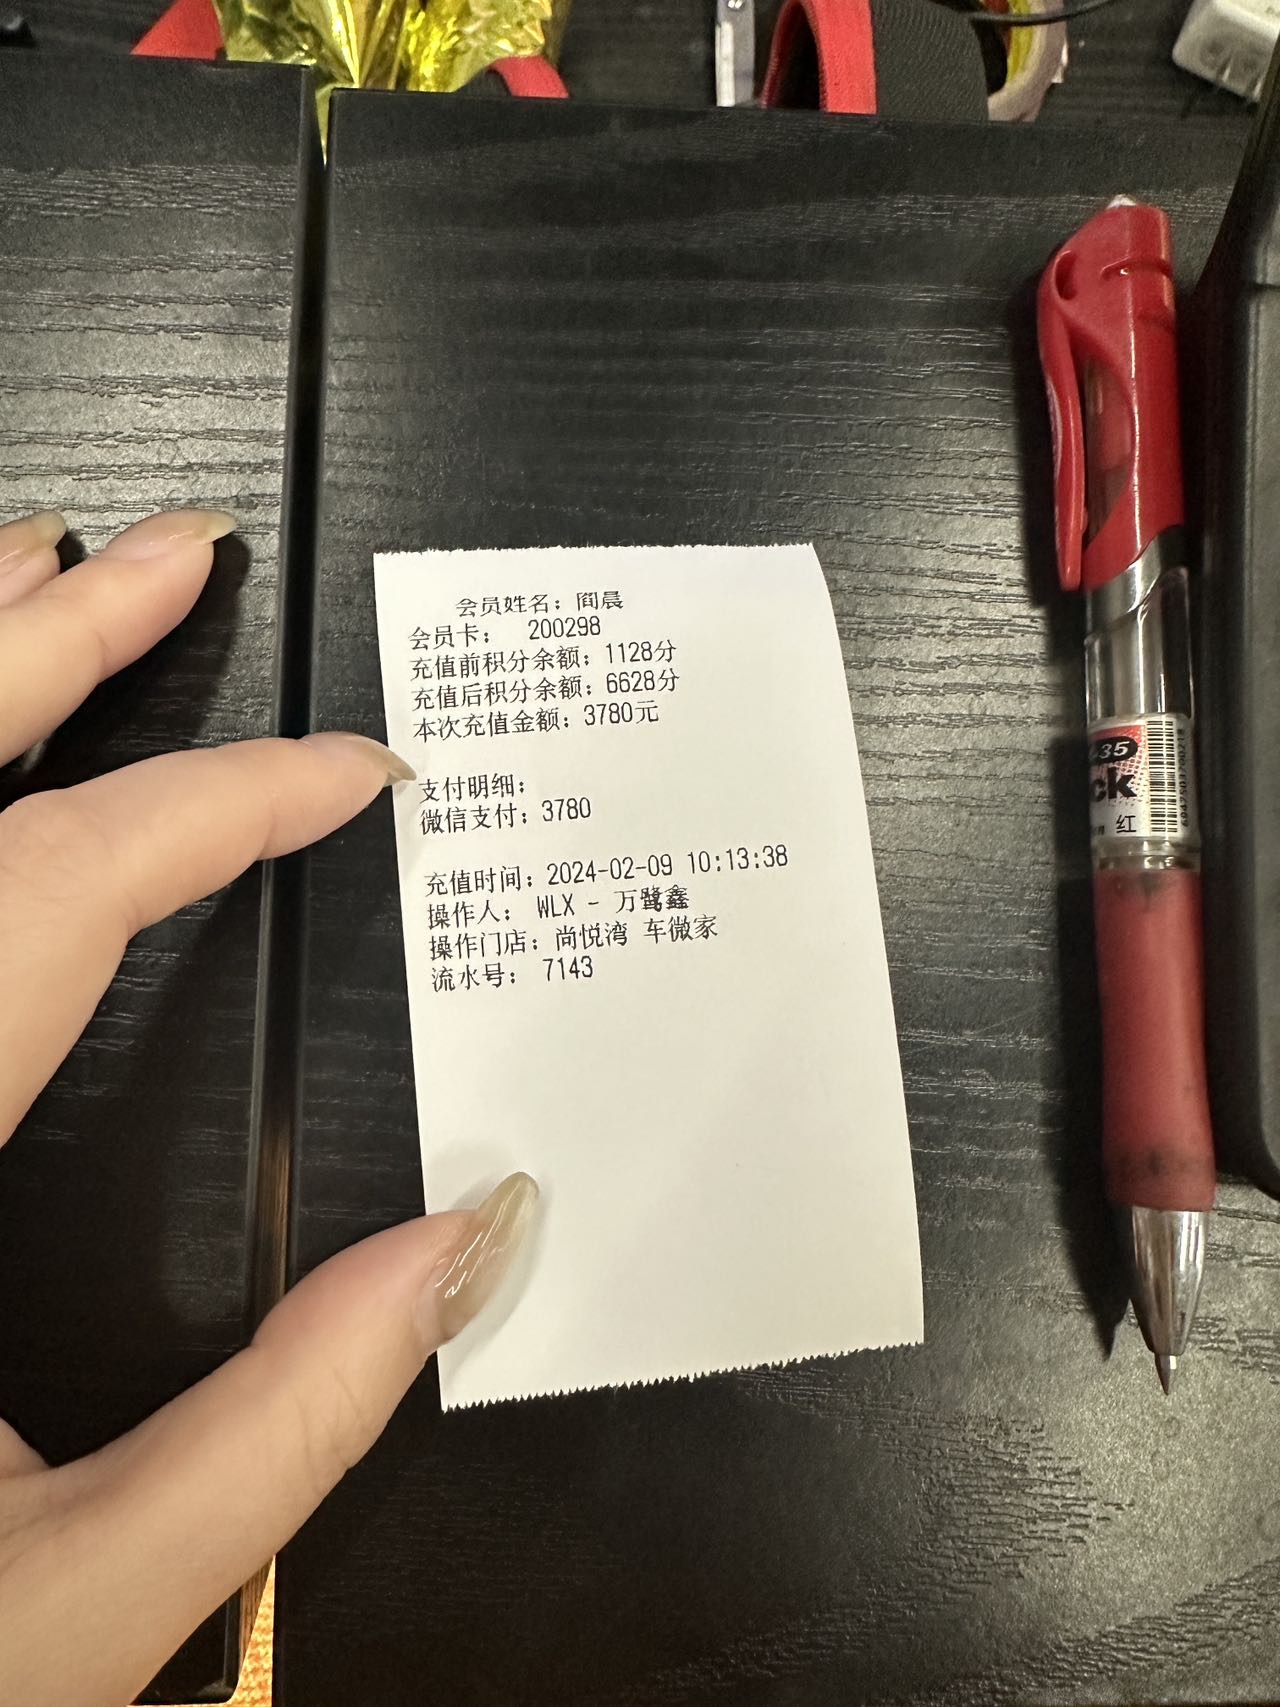 会员姓名：阎晨
会员卡： 200298
充值前积分余额：1128分
充值后积分余额：6628分
本次充值金额：3780元
支付明细：
微信支付：3780
充值时间：2024-02-09 10:13:38
操作人： WLX - 万鹭鑫
操作门店：尚悦湾 车微家
流水号： 7143
-35
ck
红